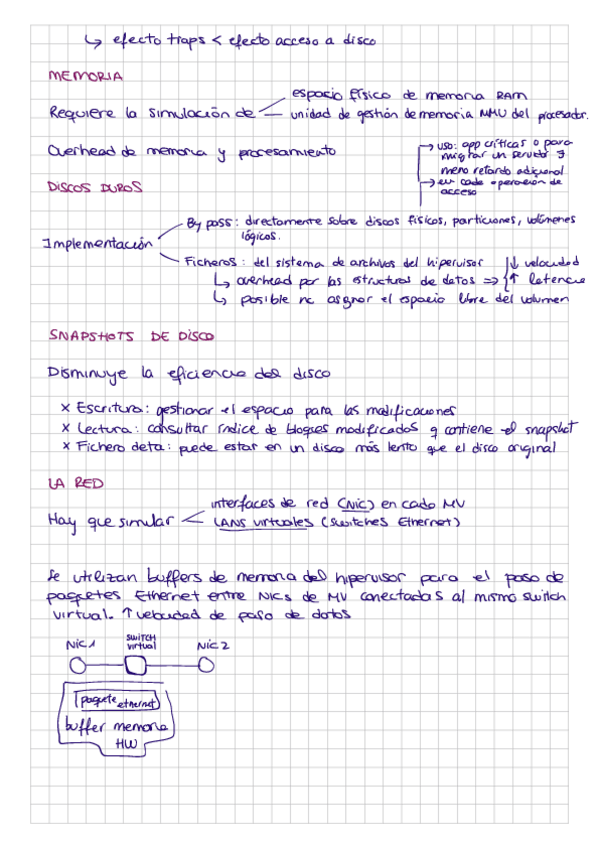 ↳ efecto traps < efecto acceso a disco
MEMORIA
espacio físico de memoria RAM
Requiere la simulación de
unidad de gestión de memoria MMU del procesador.
Overhead de memoria y procesamiento
→ uso: app críticas o para
migrar un servidor y
meno retardo adicional
→ en cada operación de
acceso
DISCOS DUROS
By pass: directamente sobre discos físicos, particiones, volúmenes
lógicos.
Implementación
Ficheros: del sistema de archivos del hipervisor
↳ overhead por las estructuras de datos ⇒ { ↓ velocidad
↑ latencia
↳ posible no asignar el espacio libre del volumen
SNAPSHOTS DE DISCO
Disminuye la eficiencia del disco
× Escritura: gestionar el espacio para las modificaciones
× Lectura: consultar índice de bloques modificados q contiene el snapshot
× Fichero delta: puede estar en un disco más lento que el disco original
LA RED
interfaces de red (NIC) en cada MV
Hay que simular
LANS virtuales (switches Ethernet)
Se utilizan buffers de memoria del hipervisor para el paso de
paquetes Ethernet entre NICs de MV conectadas al mismo switch
virtual. ↑ velocidad de paso de datos
NIC 1
SWITCH
virtual
NIC 2
paquete ethernet
buffer memoria
HW